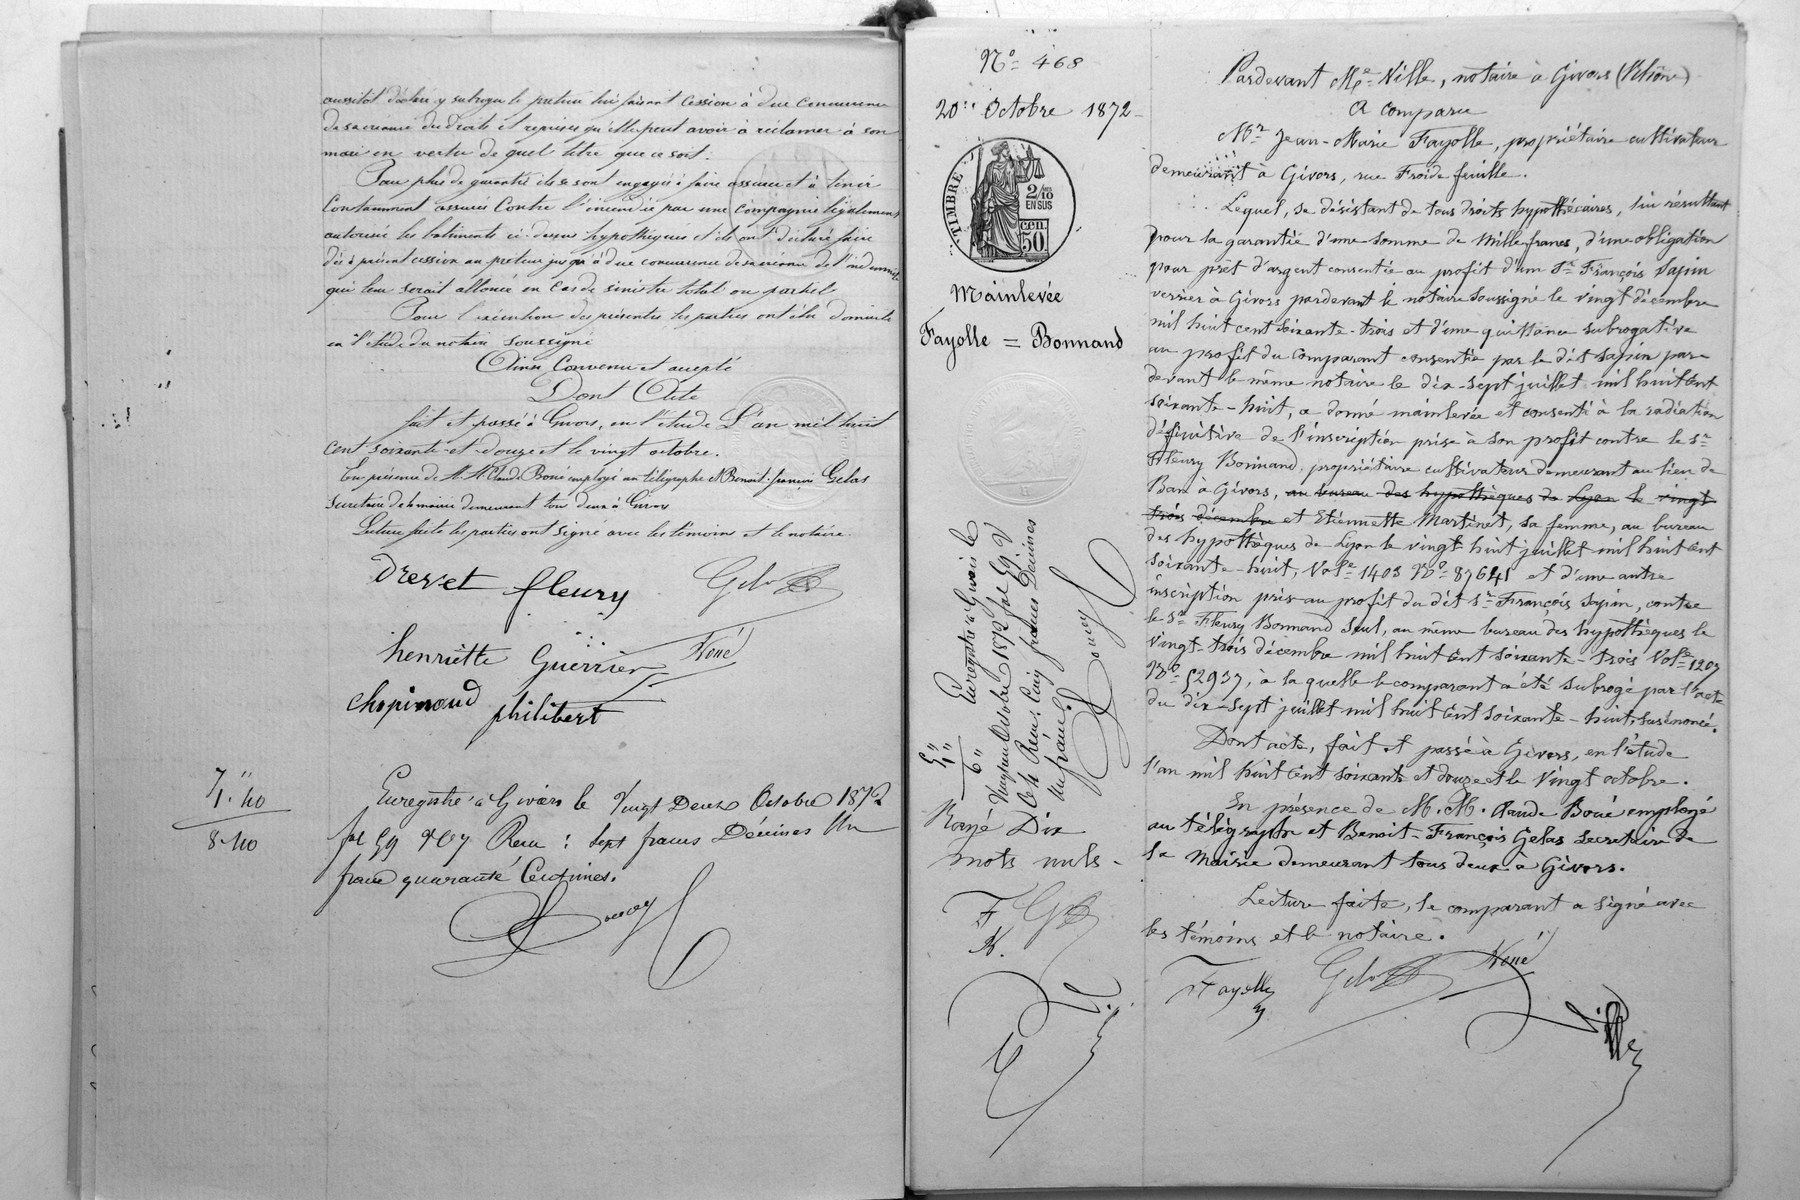 aussitôt d'abord y subroger le prêteur lui faisant cession à due concurrence
de sa créance des droits et reprises qu'elle peut avoir à réclamer à son
mari en vertu de quel titre que ce soit.
Pour plus de garantie ils se sont engagés à faire assurer et à tenir
constamment assurés contre l'incendie par une compagnie légalement
autorisée les bâtiments ci-dessus hypothéqués et ils ont déclaré faire
dès à présent cession au prêteur jusqu'à due concurrence de sa créance de l'indemnité
qui leur serait allouée en cas de sinistre total ou partiel
Pour l'exécution des présentes les parties ont élu domicile
en l'étude du notaire soussigné
Ainsi Convenu et accepté
Dont Acte
fait et passé à Givors, en l'étude L'an mil huit
cent soixante-et-douze et le vingt octobre.
En présence de M. M. Claude Boué employé au télégraphe et Benoit-françois Gelas
Secrétaire de la mairie demeurant tous deux à Givors
Lecture faite les parties ont signé avec les témoins et le notaire.
Drevet fleury Gelas
henriette Guerrier Boué
chopinoud philibert
7,"
1.40
8.40
Enregistré à Givors le Vingt Deux Octobre 1872
fol 59 Vo c 7 Reçu : Sept francs Décimes Un
franc quarante Centimes.
No 468
20 Octobre 1872
TIMBRE
2/10 EN SUS
CEN. 50.
Mainlevée
Fayolle = Bonnand
5"
1"
6"
Enregistré à Givors le
Vingt deux Octobre 1872 fol 59 V
C 4 Reçu Cinq francs Décimes
Un franc.
Rayé Dix
mots nuls -
F G
B.
Pardevant Me Ville, notaire à Givors (Rhône)
A comparu
Mr Jean-Marie Fayolle, propriétaire cultivateur
demeurant à Givors, rue Froide feuille.
Lequel, se désistant de tous droits hypothécaires, lui résultant
pour la garantie d'une somme de Mille francs, d'une obligation
pour prêt d'argent consentie au profit d'un Sr François Sapin
verrier à Givors pardevant le notaire soussigné le vingt décembre
mil huit cent soixante-trois et d'une quittance subrogative
au profit du comparant consentie par le dit Sapin par
devant le même notaire le dix-sept juillet mil huit cent
soixante-huit, a donné mainlevée et consenti à la radiation
définitive de l'inscription prise à son profit contre le Sr
Fleury Bonnand, propriétaire cultivateur demeurant au lieu de
Bans à Givors, au bureau des hypothèques de Lyon le vingt
trois décembre et Etiennette Martinet, sa femme, au bureau
des hypothèques de Lyon le vingt huit juillet mil huit cent
soixante-huit, Vole 1403 No 87641 et d'une autre
inscription prise au profit du dit Sr François Sapin, contre
le Sr Fleury Bonnand seul, au même bureau des hypothèques le
Vingt-trois décembre mil huit cent soixante-trois Vole 1207
No 52937, à laquelle le comparant a été subrogé par l'acte
du dix-sept juillet mil huit cent soixante-huit, susénoncé.
Dont acte, fait et passé à Givors, en l'étude
l'an mil huit cent soixante et douze et le Vingt octobre.
En présence de M. M. Claude Boué employé
au télégraphe et Benoit-François Gelas Secrétaire de
la Mairie demeurant tous deux à Givors.
Lecture faite, le comparant a signé avec
les témoins et le notaire.
Fayolle Gelas Boué
Ville